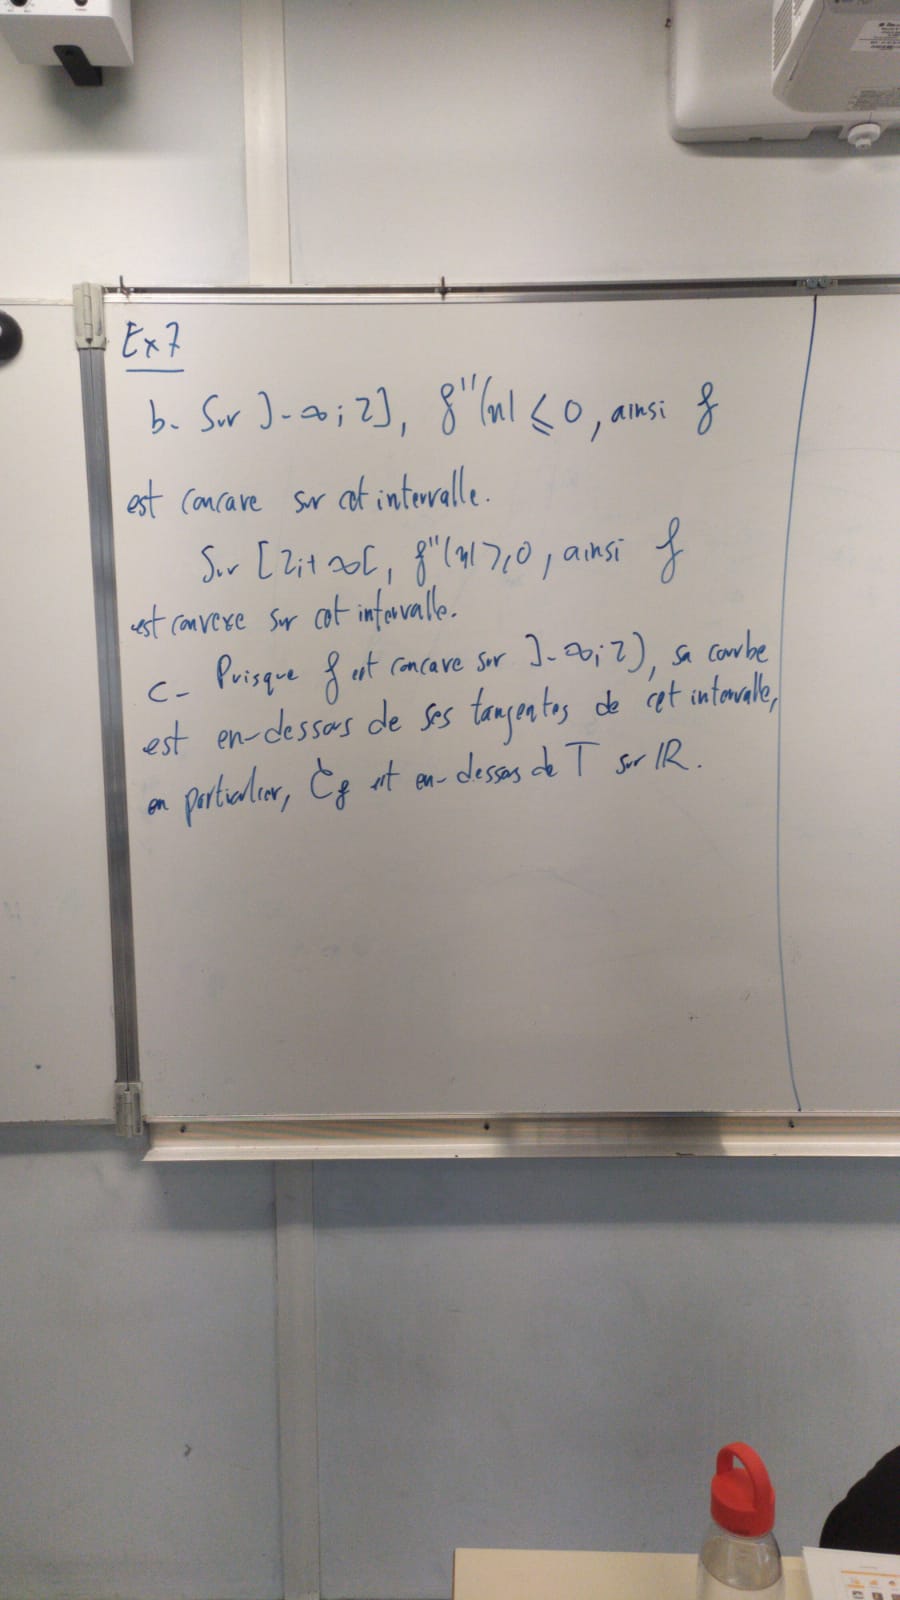 Ex 7
b- Sur ]-∞; 2], f''(x) ⩽ 0, ainsi f
est concave sur cet intervalle.
Sur [2; +∞[, f''(x) ⩾ 0, ainsi f
est convexe sur cet intervalle.
c- Puisque f est concave sur ]-∞; 2], sa courbe
est en-dessous de ses tangentes de cet intervalle,
en particulier, Cf est en-dessous de T sur ℝ.